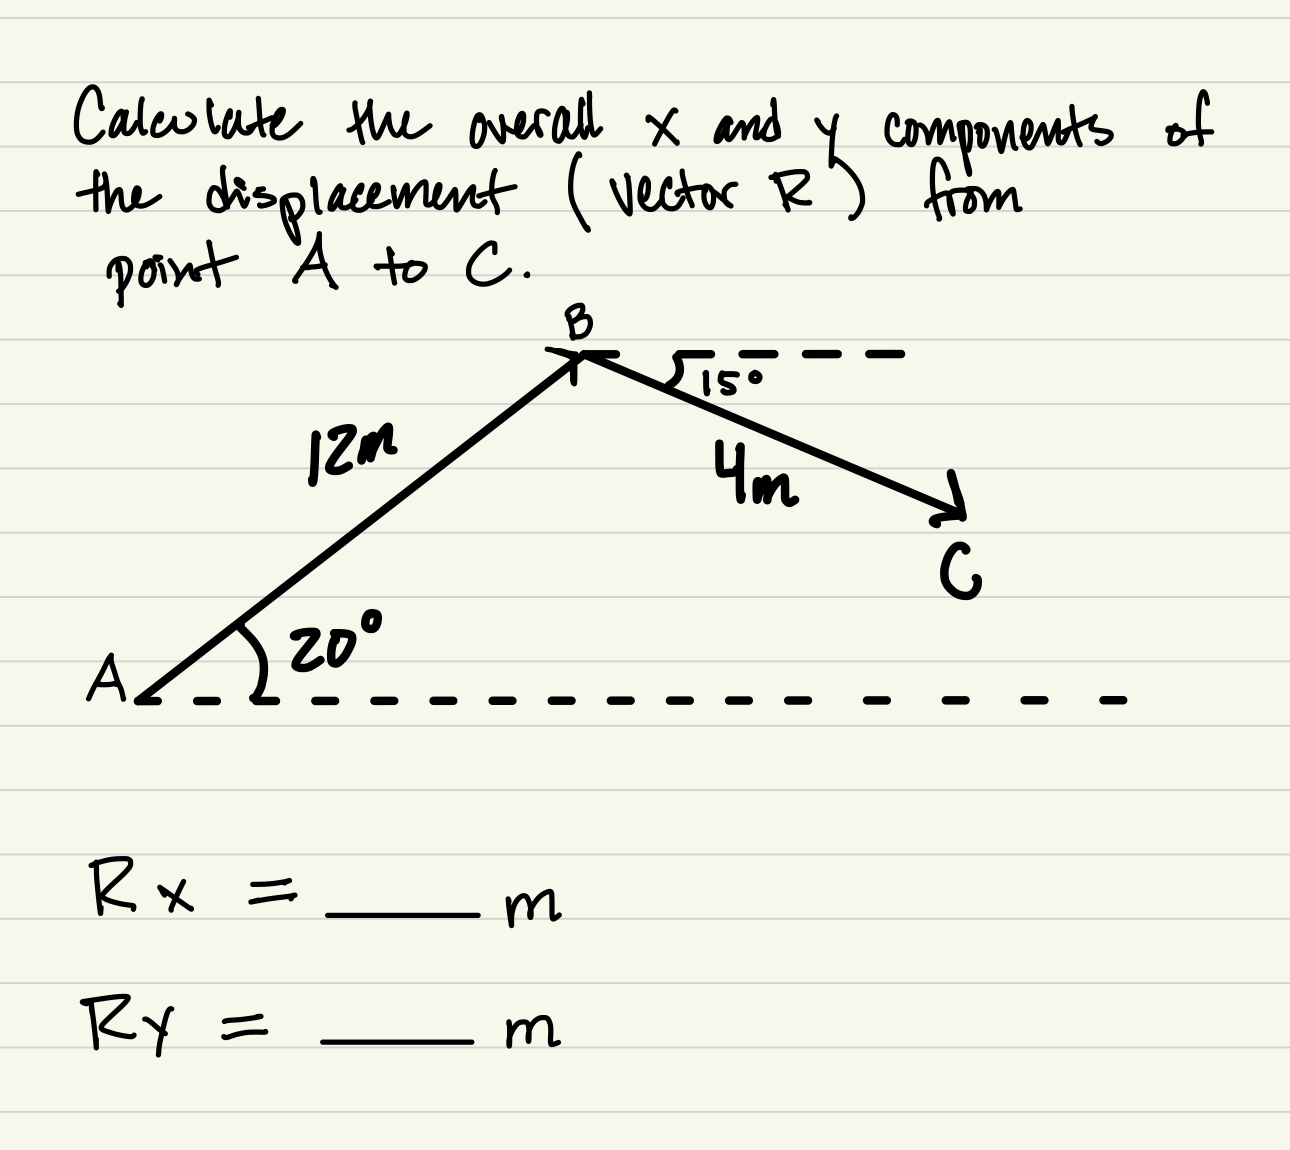 Calculate the overall x and y components of
the displacement (vector R) from
point A to C.
B
15°
12m
4m
C
20°
A
Rx = ____ m
Ry = ____ m